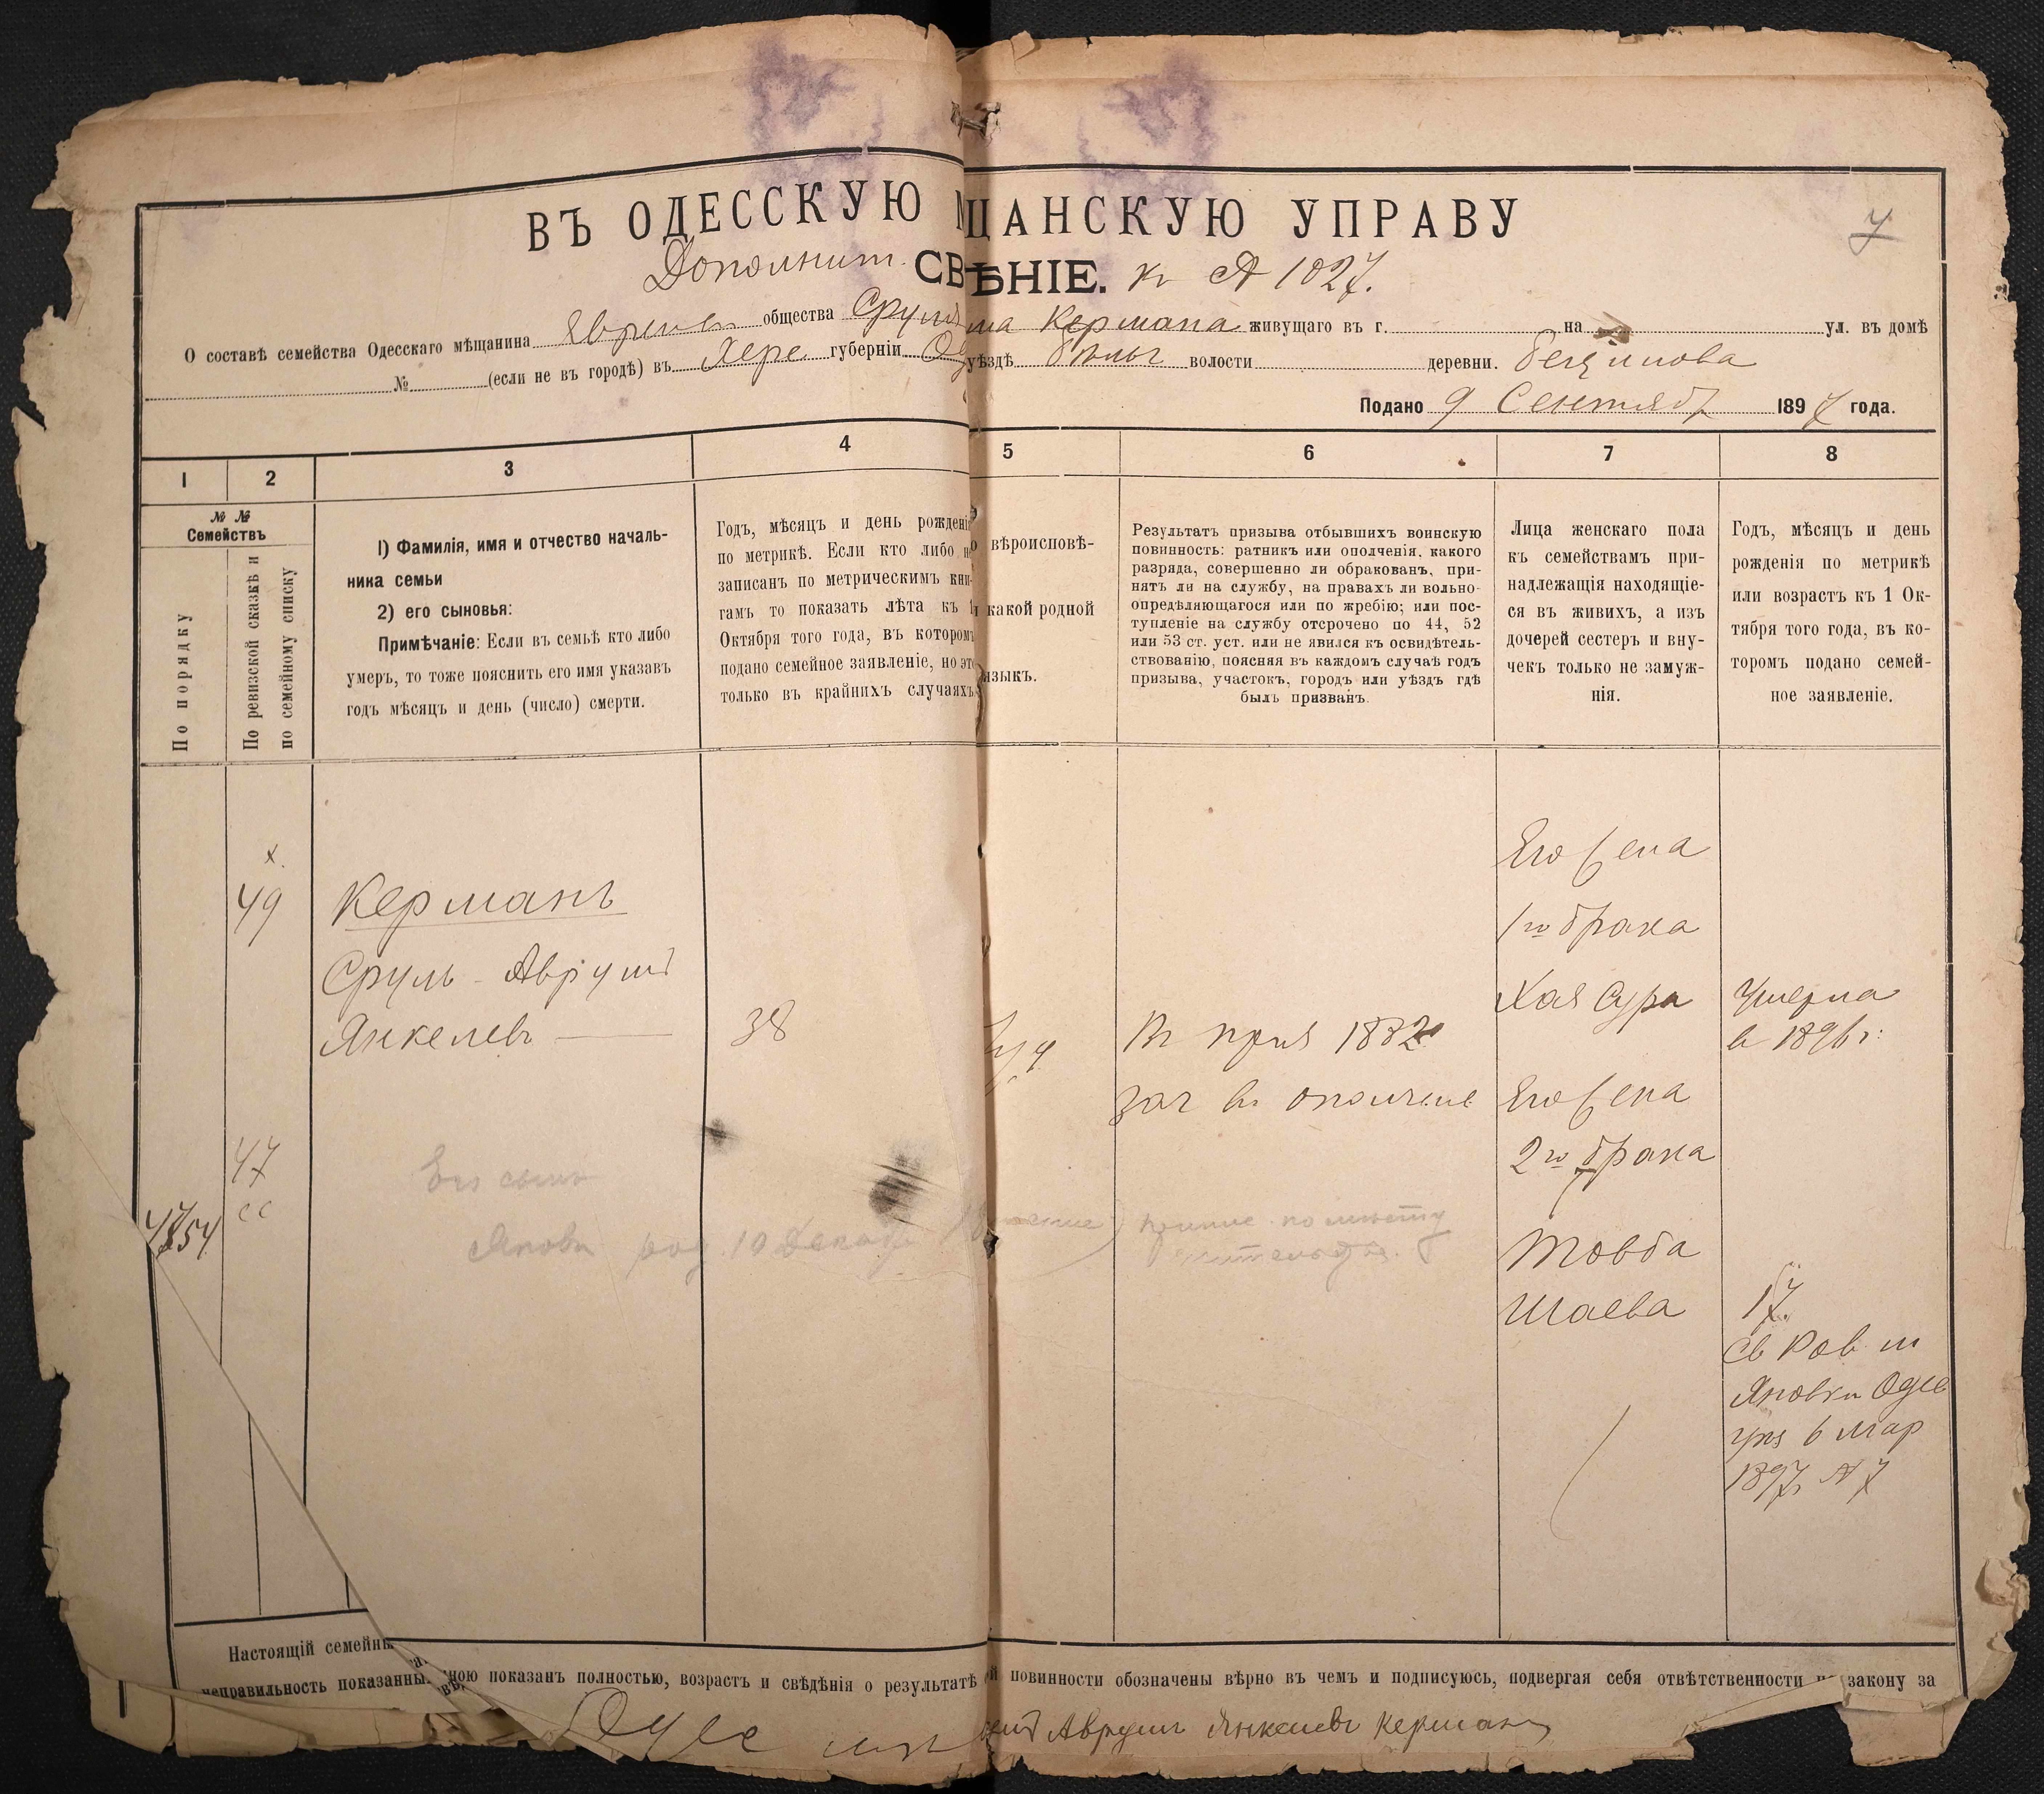 7
ВЪ ОДЕССКУЮ М ЩАНСКУЮ УПРАВУ
Дополнит. СВ ѢНІЕ. къ № 1027.
О составѣ семейства Одесскаго мѣщанина Евреи общества Сруля Кермана живущаго въ г. на ул. въ домѣ
№ (если не въ городѣ) въ Херс губерніи Од уѣздѣ волости деревни.
Подано 9 Сентяб 1897 года.
1 2 3 4 5 6 7 8
№ № Семействъ
По порядку
По ревизской сказкѣ и
по семейному списку
1) Фамилія, имя и отчество началь-
ника семьи
2) его сыновья:
Примѣчаніе: Если въ семьѣ кто либо
умеръ, то тоже пояснить его имя указавъ
годъ мѣсяцъ и день (число) смерти.
Годъ, мѣсяцъ и день рожденія
по метрикѣ. Если кто либо не
записанъ по метрическимъ кни-
гамъ то показать лѣта къ 1
Октября того года, въ которомъ
подано семейное заявленіе, но это
только въ крайнихъ случаяхъ
вѣроисповѣ-
какой родной
языкъ.
Результатъ призыва отбывшихъ воинскую
повинность: ратникъ или ополченія, какого
разряда, совершенно ли обракованъ, при-
нятъ ли на службу, на правахъ ли вольно-
опредѣляющагося или по жребію; или пос-
тупленіе на службу отсрочено по 44, 52
или 53 ст. уст. или не явился къ освидѣтель-
ствованію, поясняя въ каждомъ случаѣ годъ
призыва, участокъ, городъ или уѣздъ гдѣ
былъ призванъ.
Лица женскаго пола
къ семействамъ при-
надлежащія находящіе-
ся въ живихъ, а изъ
дочерей сестеръ и вну-
чекъ только не замуж-
нія.
Годъ, мѣсяцъ и день
рожденія по метрикѣ
или возрастъ къ 1 Ок-
тября того года, въ ко-
торомъ подано семей-
ное заявленіе.
х.
49
Керманъ
Сруль - Аврумъ
Янкелевъ
38
Іуд
Въ приз 1882
зач въ ополчение
Его жена
1го брака
Хая Сура
Умерла
в 1896 г.
Его жена
2го брака
Товба
Шаева
17.
Св Рав м
Яновки Одес
уез 6 мар
1897 № 7
47
4754
Его сынъ
Яковъ род. 10 Декабр
по месту
жительства.
Настоящій семейны
мною показанъ полностью, возрастъ и свѣдѣнія о результатѣ й повинности обозначены вѣрно въ чемъ и подписуюсь, подвергая себя отвѣтственности по закону за
неправильность показанны
Одес Аврумъ Янкелевъ Керманъ